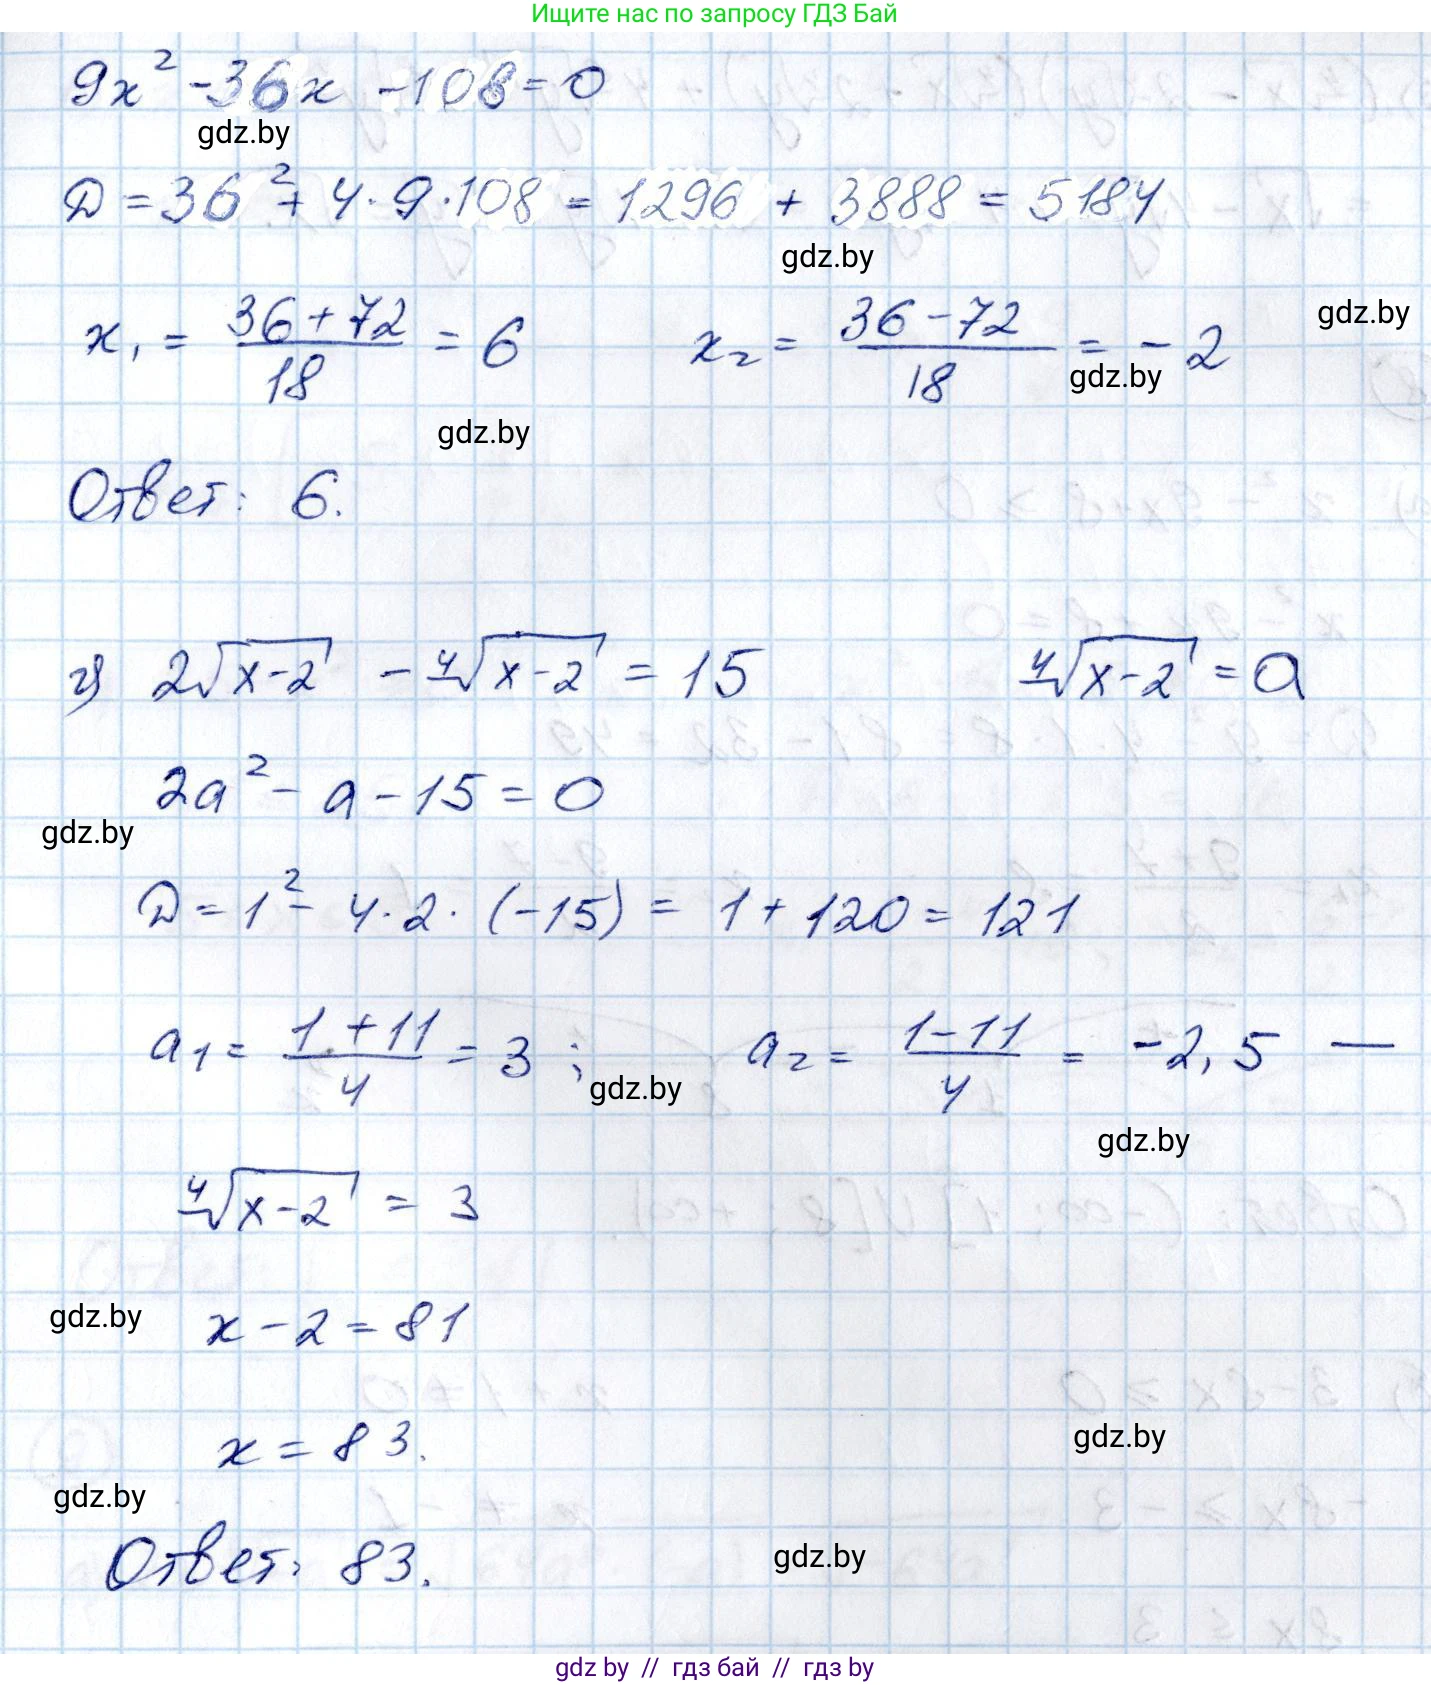 Ищите нас по запросу ГДЗ Бай
9x² - 36x - 108 = 0
gdz.by
D = 36² + 4·9·108 = 1296 + 3888 = 5184
gdz.by
gdz.by
x₁ = (36+72)/18 = 6    x₂ = (36-72)/18 = -2
gdz.by
gdz.by
Ответ: 6.
г) 2√(x-2) - ⁴√(x-2) = 15    ⁴√(x-2) = a
2a² - a - 15 = 0
gdz.by
D = 1² - 4·2·(-15) = 1 + 120 = 121
a₁ = (1+11)/4 = 3;    a₂ = (1-11)/4 = -2,5 —
gdz.by
gdz.by
⁴√(x-2) = 3
gdz.by
x - 2 = 81
x = 83.
gdz.by
gdz.by
Ответ: 83.
gdz.by
gdz by // гдз бай // гдз by